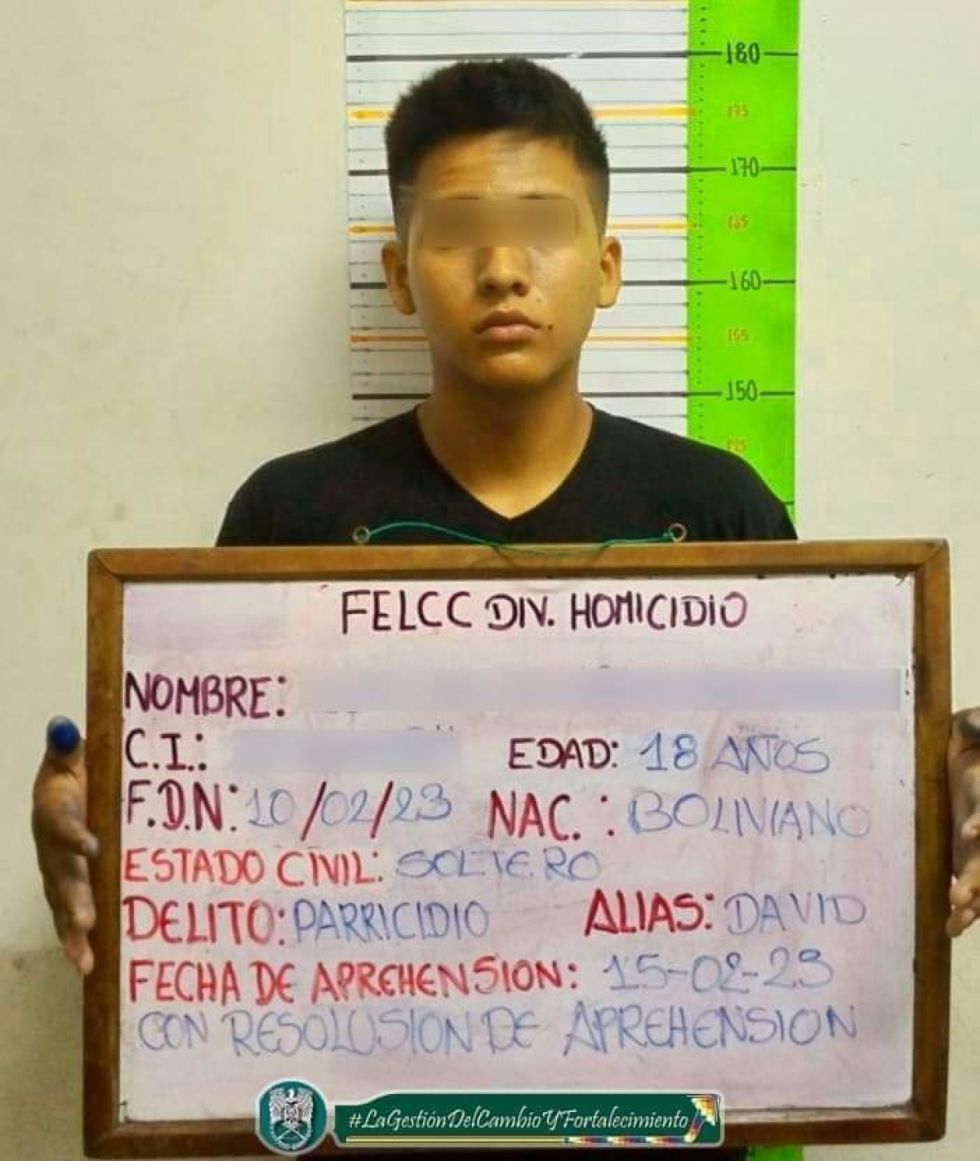 180
175
170
165
160
155
150
145
FELCC DIV. HOMICIDIO
NOMBRE:
C.I.: EDAD: 18 AÑOS
F.D.N: 10/02/23 NAC.: BOLIVIANO
ESTADO CIVIL: SOLTERO
DELITO: PARRICIDIO ALIAS: DAVID
FECHA DE APREHENSION: 15-02-23
CON RESOLUSION DE APREHENSION
#LaGestiónDelCambioYFortalecimiento